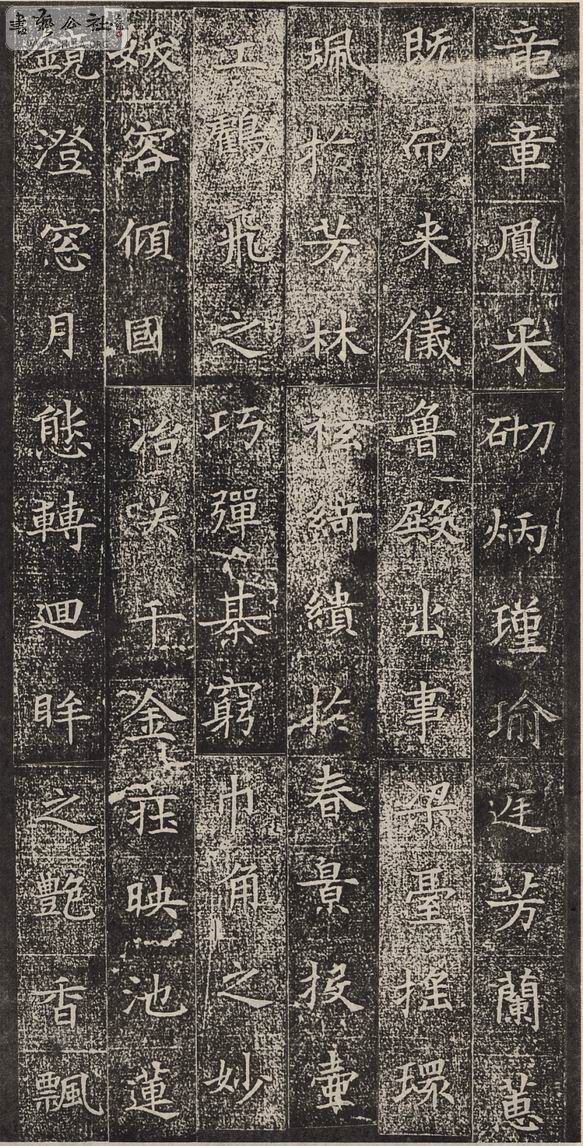 書藝公社
竜章鳳采砌炳瑾瑜庭芳蘭蕙
既而来儀魯殿出事梁臺搖環
珮於芳林袨綺繢於春景投壷
工鶴飛之巧彈棊窮巾角之妙
妖容傾國冶咲千金莊映池蓮
鏡澄窓月態轉迴眸之艶香飄